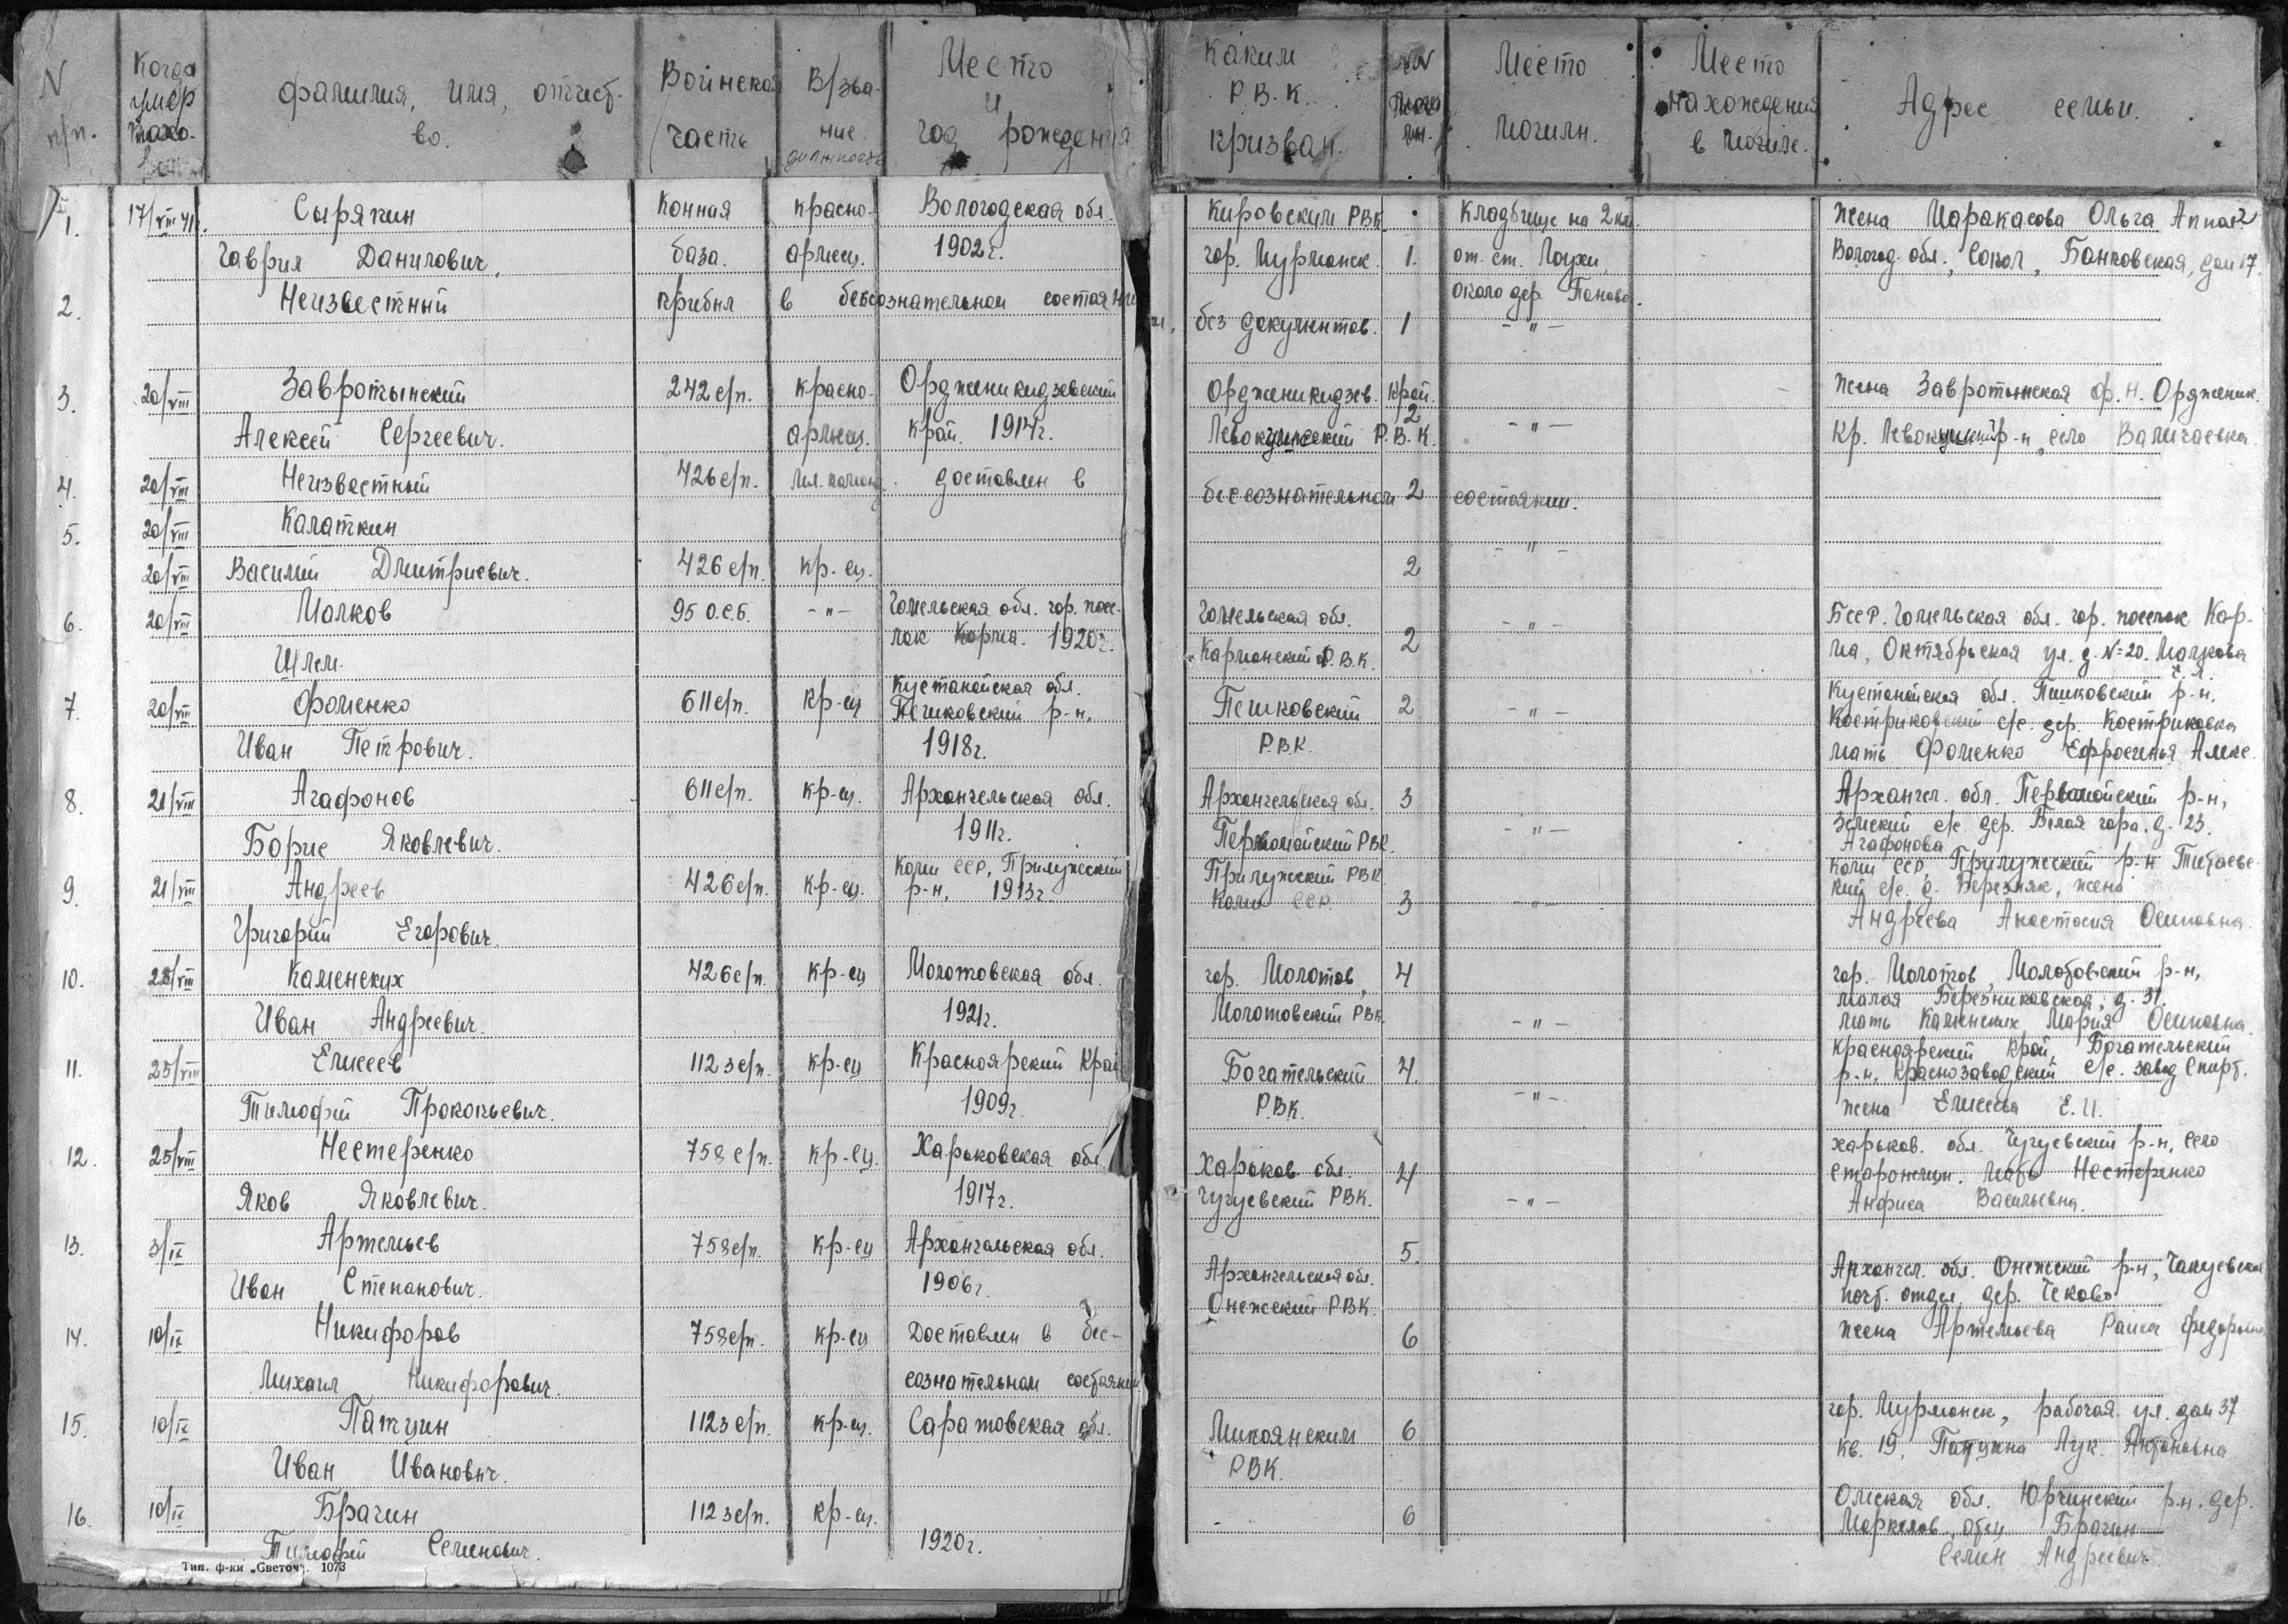 N п/п.
Когда умер
Фамилия, имя, отчест-
во.
Воинская
часть
В/зва-
ние
должность
Место
и
год рождения
Каким
Р.В.К.
призван.
Место
могилы.
Место
нахождения
в могиле.
Адрес семьи.
1. 17/VIII 41г. Сырякин Конная красно- Вологодская обл. Кировским РВК. Кладбище на 2 км. жена Шаракасова Ольга
Гаврил Данилович. база. армеец. 1902г. гор. Мурманск. 1. от. ст. Лоухи, Вологод. обл., Сокол, Банковская, дом 17.
около дер. Паново.
2. Неизвестный прибыл в бессознательном состоянии, без документов. 1 -"-
3. 20/VIII Завротынский 242 с/п. красно- Орджоникидзевский Орджоникидзев. край. жена Завротынская Ф.Н. Орджоник.
Алексей Сергеевич. армеец. край. 1914г. Левокумский Р.В.К. 2 -"- кр. Левокумский р-н, село Величаевка.
4. 20/VIII Неизвестный 426 с/п. мл. команд. доставлен в бессознательном 2 состоянии.
5. 20/VIII Калаткин -"-
20/VIII Василий Дмитриевич. 426 с/п. кр-ец. 2
6. 20/VIII Малков 95 О.С.Б. -"- Гомельская обл. гор. посе- Гомельская обл. -"- БССР. Гомельская обл. гор. поселок Кар-
лок Карма. 1920г. 2
Шлем. Карманский Р.В.К. ма, Октябрьская ул. д. №20. Малкова
С.Л.
7. 20/VIII Фоменко 611 с/п. кр-ец Кустанайская обл. Пешковский 2 -"- Кустанайская обл. Пешковский р-н,
Пешковский р-н, Р.В.К. Костриковский с/с. дер. Костриковка
Иван Петрович. 1918г. мать Фоменко Ефросинья Алекс.
8. 21/VIII Агафонов 611 с/п. кр-ец. Архангельская обл. Архангельская обл. 3 Архангел. обл. Первомайский р-н,
Борис Яковлевич. 1911г. Первомайский РВК. -"- Земский с/с дер. Белая гора. д. 23.
Агафонова
9. 21/VIII Андреев 426 с/п. кр-ец. Коми ССР, Прилужский Прилужский РВК Коми ССР, Прилужский р-н
р-н, 1913г. Коми ССР. 3 -"- кий с/с. д. Березняк, жена
Григорий Егорович. Андреева Анастасия Осиповна.
10. 28/VIII Каменских 426 с/п. кр-ец Молотовская обл. гор. Молотов, 4 гор. Молотов, Молотовский р-н,
Малая Березниковская, д. 31.
Иван Андреевич. 1921г. Молотовский РВК. -"- мать Каменских Мария Осиповна.
11. 25/VIII Елисеев 1123 с/п. кр-ец Красноярский край Богательский 4. Красноярский край, Богательский
р-н, Краснозаводский с/с. завод Спирт.
Тимофей Прокопьевич. 1909г. Р.В.К. -"- жена Елисеева Е.И.
12. 25/VIII Нестеренко 758 с/п. кр-ец. Харьковская обл. Харьков. обл. 4 Харьков. обл. Чугуевский р-н, село
мать Нестеренко
Яков Яковлевич. 1917г. Чугуевский РВК. -"- Анфиса Васильевна.
13. 3/IX Артемьев 758 с/п. кр-ец Архангельская обл. Архангельская обл. 5. Архангел. обл. Онежский р-н, Чекуевское
Иван Степанович. 1906г. Онежский РВК. почт. отдел. дер. Чеково
жена Артемьева Раиса Федоровна
14. 10/IX Никифоров 758 с/п. кр-ец Доставлен в бес- 6
Михаил Никифорович. сознательном состоянии
15. 10/IX Патуин 1123 с/п. кр-ец. Саратовская обл. Микоянским 6 гор. Мурманск, рабочая ул. дом 37
Иван Иванович. РВК. кв. 19, Лук. Антоновна
16. 10/IX Брагин 1123 с/п. кр-ец. - 6 Омская обл. Юргинский р-н. дер.
Маркелов, отец Брагин
Тимофей Семенович. 1920г. Семен Андреевич.
Тип. ф-ки „Светоч". 1073